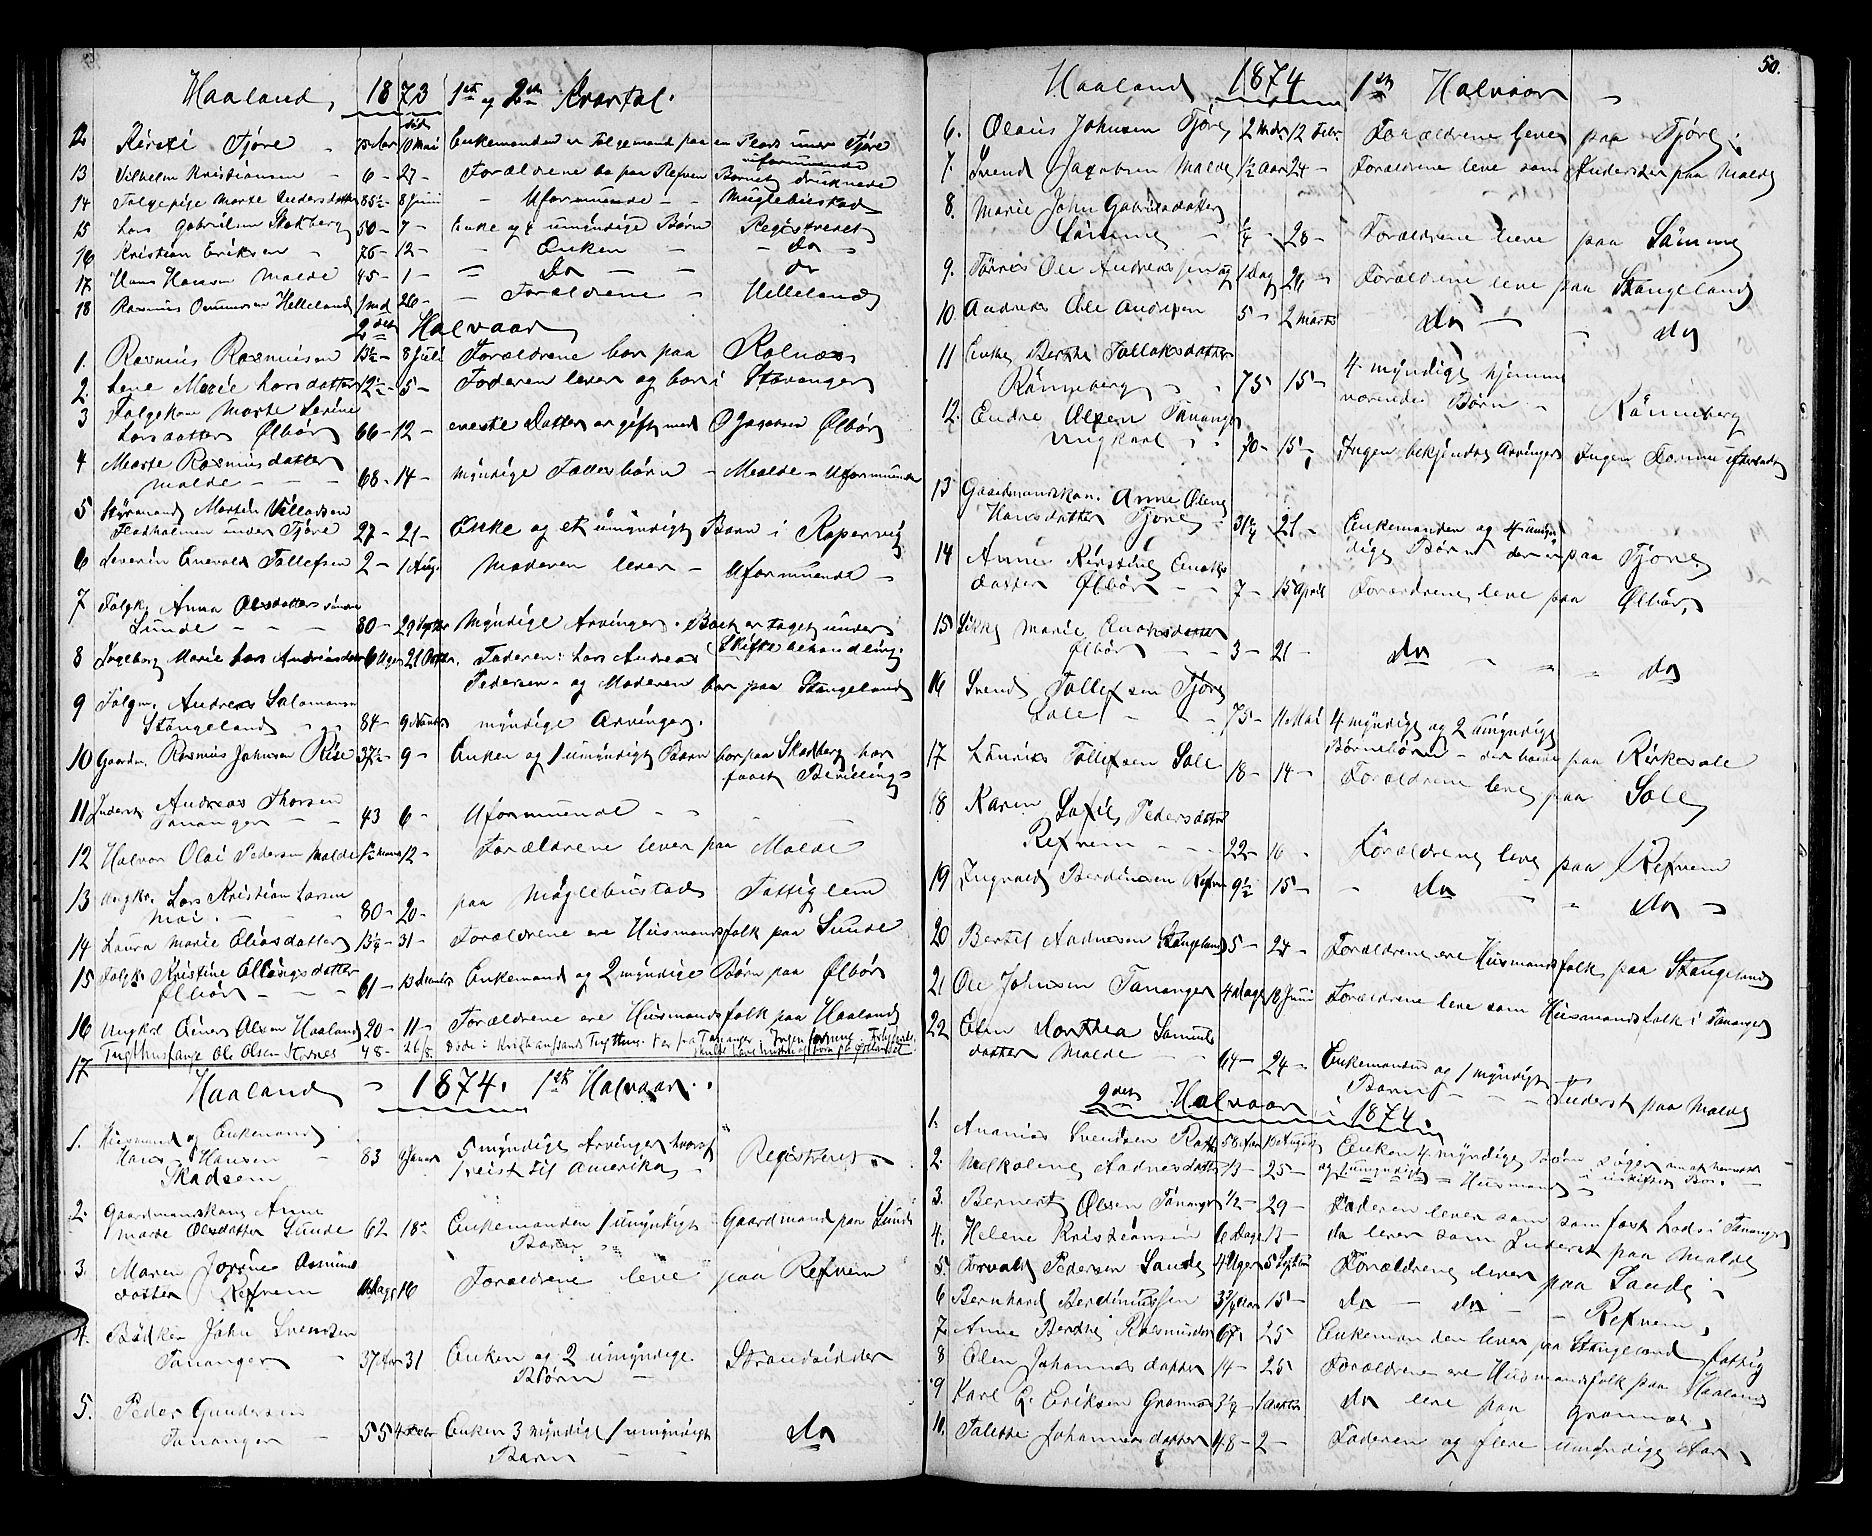 Haaland, 1873 1st og 2den Kvartal.
død
12 Kirsti Tjøre - 75 Aar 10 Mai Enkemanden er Folgemand paa en Plads under Tjøre
uformuende
13 Vilhelm Kristiansen - 6 - 27 - Forældrene bo paa Refven Barnet druknede
14 Folgepige Marte Andersdatter 85½ - 8 Juni - Uformuende - Myglebustad
15 Lars Gabrielsen Stokberg 50 - 7 - Enke og umyndige Børn Registreret
16 Kristian Eriksen - 76 - 12 - - Enken - - do -
17 Hans Hansen Malde 45 - 1 - - Do - - do
18 Rasmus Helleland 1 md 26 - - Forældrene - Helleland
2det Halvaar
1. Rasmus Rasmussen 13½ - 8 Juli Forældrene bor paa Rolnæs
2. Lene Marie Larsdatter 12½ - 5 - Faderen lever og bor i Stavanger
3 Folgekone Marte Serine
Larsdatter Ølbør 66 - 12 - eneste Datter er gift med O Jacobsen Ølbør
4 Marte Rasmusdatter
Malde - - - 68 - 14 - myndige Fællesbørn - Malde - Uformuende
5 Styrmand Morten Villadsen
Fladholmen under Tjøre 27 - 21 - Enke og et umyndigt Barn i Kopervig
6 Severin Enevald Tollefsen 2 - 1 Aug. Moderen lever - Uformuende -
7 Folgk. Anna Olsdatter
Sunde - - - 80 - 29 Septbr Myndige Arvinger. Boet er taget under
Skiftebehandling.
8 Ingeborg Marie Lars Andreasdatter 6 Uger 21 Oktbr. Faderen: Lars Andreas
Pedersen - og Moderen bor paa Stangeland
9 Folgm. Andreas Salamonsen
Stangeland - 84 - 9 Novbr myndige Arvinger.
10 Gaardm. Rasmus Johnsen Rise 37½ - 9 - Enken og 1 umyndigt Barn bor paa Skadberg har
faaet Bevilling
11 Inderst Andreas Thorsen
Tananger - - 43 6 - Uformuende - -
12 Halvor Olai Pedersen Malde 12 - Forældrene lever paa Malde
13 Ungka. Lars Kristian Larsen
80 - 20 - paa Møglebustad Fattiglem
14 Laura Marie Eliasdatter 13¼ - 31 - Forældrene ere Husmandsfolk paa Sunde
15 Folgk. Kristine Ellingsdatter
Ølbør - - - 61 - 13 December Enkemand og 2 myndige Børn paa Ølbør
16 Ungkal Einer Olsen Haaland 20 - 11 - Forældrene ere Husmandsfolk paa Haaland
17 Tugthusfange Ole Olsen 48 - 26/8 Døde i Kristiansands Tugthus. Var fra Tananger.
Haaland - 1874. 1ste Halvaar.
1. Husmand og Enkemand
Hans Hansen
Skadsem 83 Januar 5 myndige Arvinger hvoraf
1 reist til Amerika - Registreret
2. Gaardmandskone Anne
Marte Olsdatter Sunde 62 18 - Enkemanden 1 umyndigt Gaardmand paa Sunde
Barn
3. Maren Jorine Asmunds
datter Refvem Dage 16 Forældrene leve paa Refvem
4. Bødker John Svendsen
Tananger 37 Aar 31 Enken og 2 umyndige Strandsidder
Børn -
5. Peder Gundersen
Tananger - 55 4 Enken 3 myndige 1 umyndigt do
Barn - -
50.
Haaland 1874 1ste Halvaar -
6. Olaus Johnsen Tjøre 2 Mdr 12 Febr. Forældrene leve paa Tjøre
7. Svend Jacobsen Malde 1½ Aar 24 - Forældrene leve som Inderster paa Malde
8. Marie John Gabrielsdatter
Sømme ¼ - 28 - Forældrene leve paa Sømme
9. Tørris Ole Andreassen 1 Dag 26 - Forældrene leve paa Stangeland
10. Andreas Ole Andresen 5 - 2 Marts do - - do
11 Enke Berthe Tollaksdatter
Rønneberg - 75 15 - 4 myndige hjemme
værende Børn - Rønneberg
12. Endre Olsen Tananger
Ungkarl - 70 - 15 - Ingen bekjendte Arvinger Ingen Formue efterladt
13 Gaardmandskone Anne Oline
Hansdatter Tjøre 31¾ 21 - Enkemanden og 4 umyn
dige Børn der er paa Tjøre
14 Anne Kirstine Enoks
datter Ølbør - - 7 - 15 April Forældrene leve paa Ølbør,
15 Sikke Marie Enoksdatter
Ølbør - 3 - 21 - do - - do
16 Svend Tollefsen Tjøre
Sole - - 75 - 11 Mai 4 myndige og 2 umyndige
Børnebørn - der boende paa Kirkesole
17 Laurits Tollefsen Sole 18 - 14 - Forældrene leve paa Sole
18 Karen Sofie Pedersdatter
Refvem - - 22 - 10 - Forældrene leve paa Refvem
19 Ingvald Berdinesen Refvem 9½ 15 - - do - - do -
20 Bertel Aadnesen Stangeland 5 - 24 - Forældrene ere Husmandsfolk paa Stangeland
21 Ole Johnsen Tananger 4 Dage 18 Juni Forældrene leve som Husmandsfolk i Tananger
22 Elen Dorthea Samuels
datter Malde 64 - 24 - Enkemanden og 1 myndigt
Barn - - Inderst paa Malde
2det Halvaar 1874
1. Ananias Svendsen Rott 58 Aar 13 August Enken 4 myndige Børn søger om at hensidde
og umyndigt - Husmand - i uskiftet Bo. -
2. Malkolene Aadnesdatter 13 - 25 -
3. Bernert Olsen Tananger ½ - 29 - Faderen lever som fast Lods i Tananger
4. Helene Kristiansen 6 Dage 13 - do lever som Inderst paa Malde
5. Torvald Pedersen Sande 4 Uger 5 Septbr Forældrene lever paa Sande -
6 Bernhard Berdinussen 3¾ Aar 15 - do - do - - Refvem,
7. Anne Berthe Rasmusdatter 67 - 25 Enkemanden lever paa Stangeland fattig
8 Elen Johannesdatter 14 - 25 Forældrene ere Husmandsfolk paa Haaland
9 Karl E. Eriksen Grannes 3¼ - 1 Oktbr do leve paa Grannes,
10. Talette Johannesdatter 48 - 2 - Faderen og flere umyndige